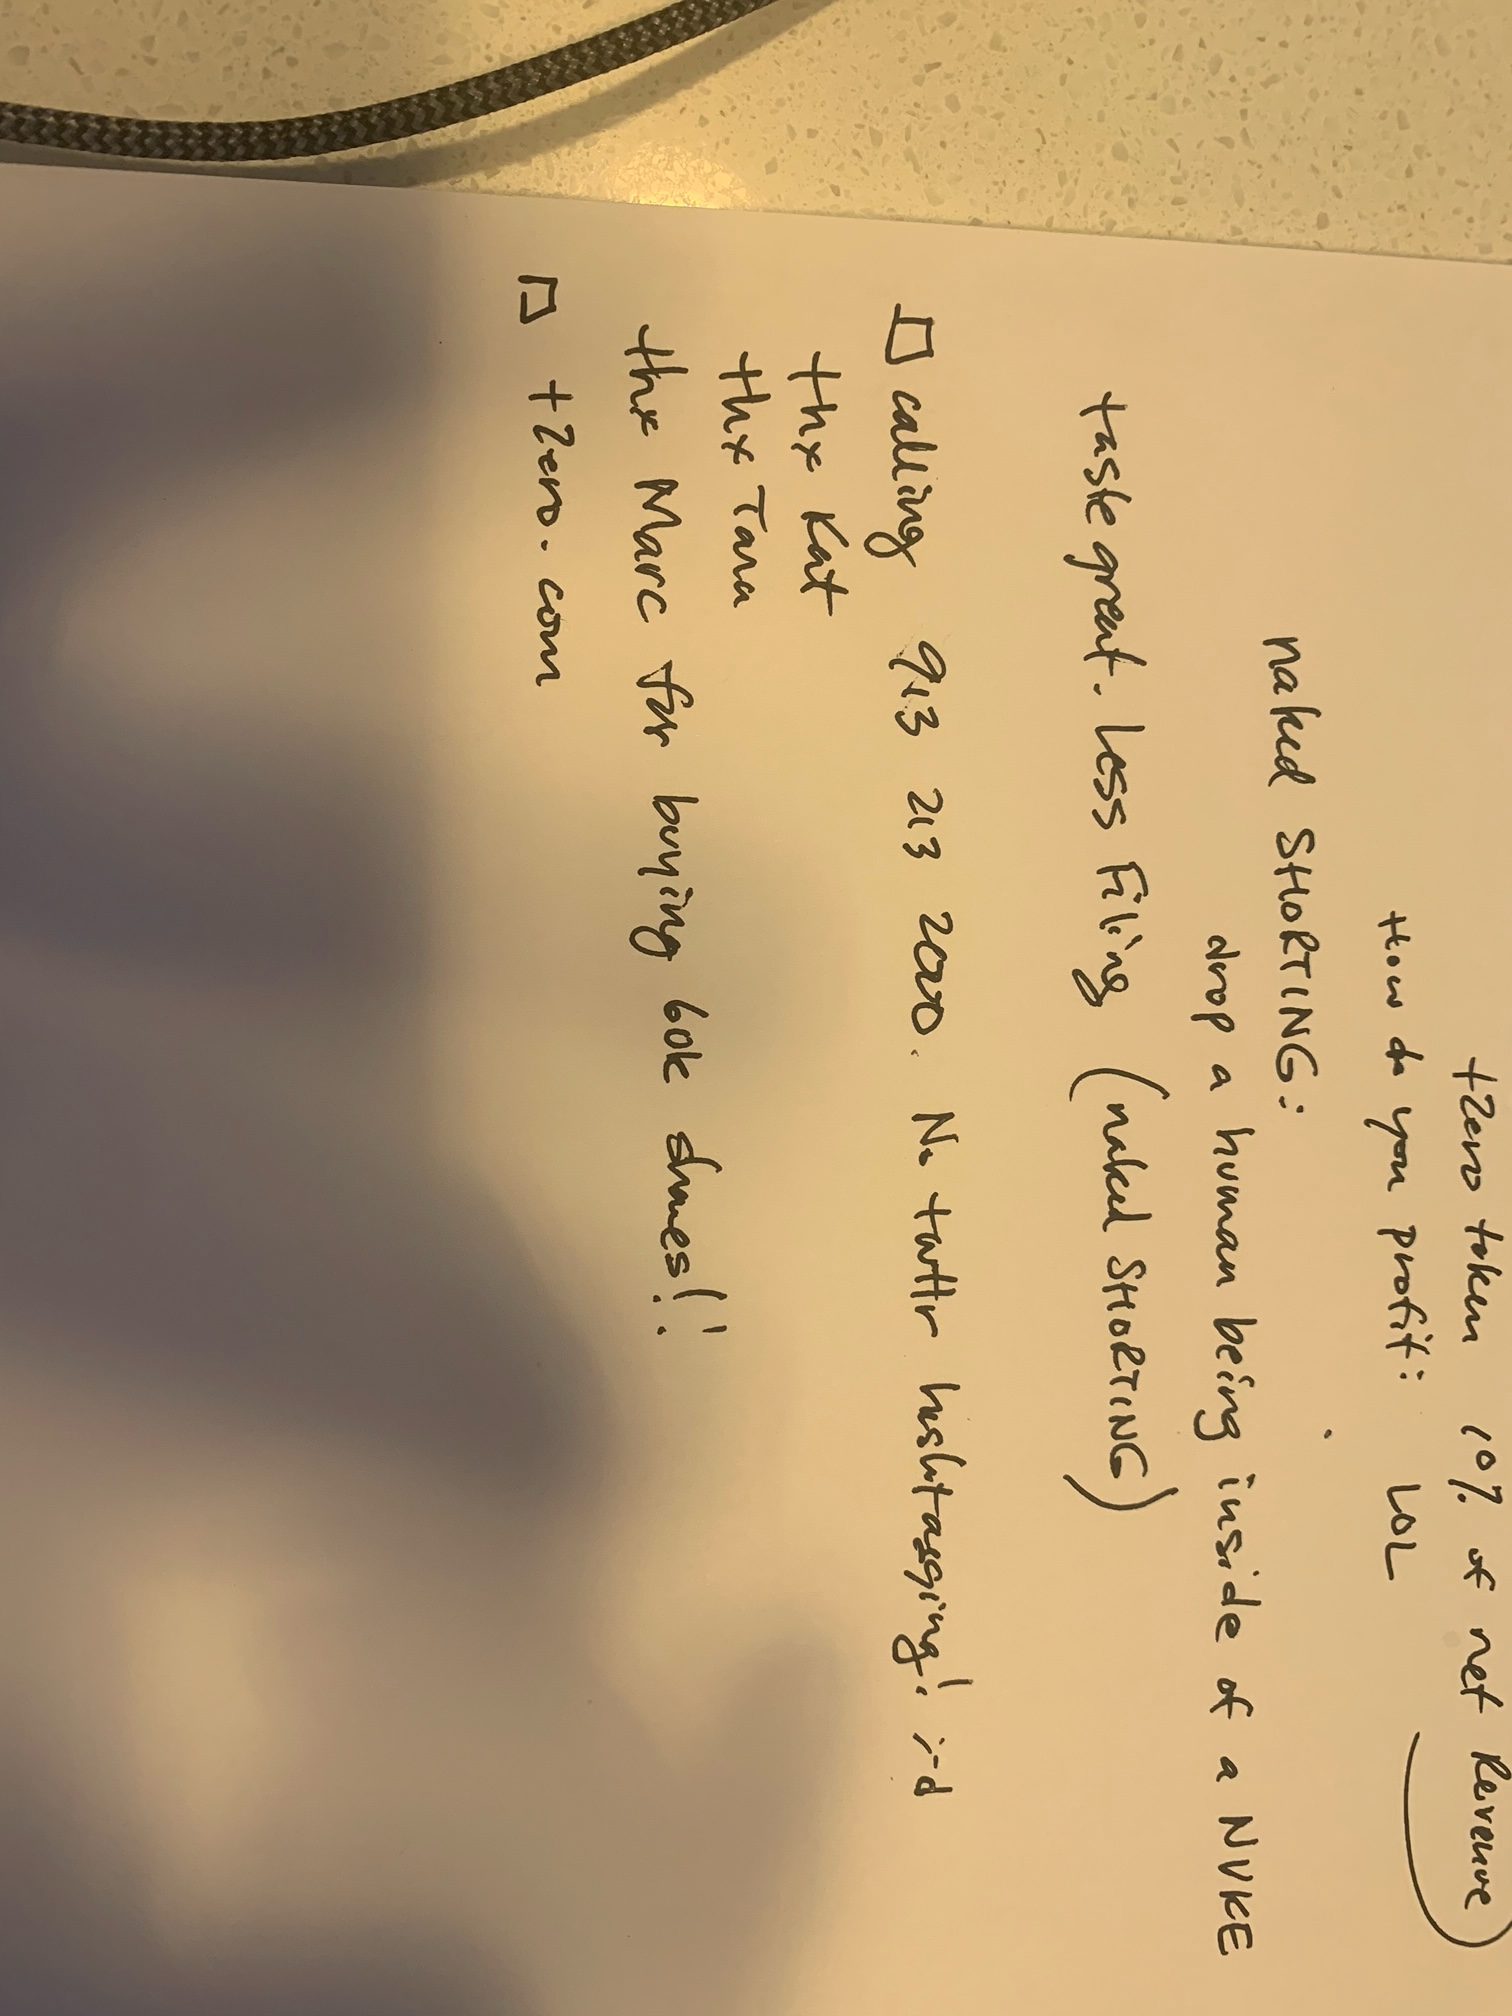 tZero token 10% of net Revenue
How do you profit: LOL
naked SHORTING:
drop a human being inside of a NUKE
taste great. Less Filing (naked SHORTING)
□ calling 913 213 2000. No twttr hashtagging! :-d
thx Kat
thx Tara
thx Marc for buying 60k shares!!
□ tZero.com